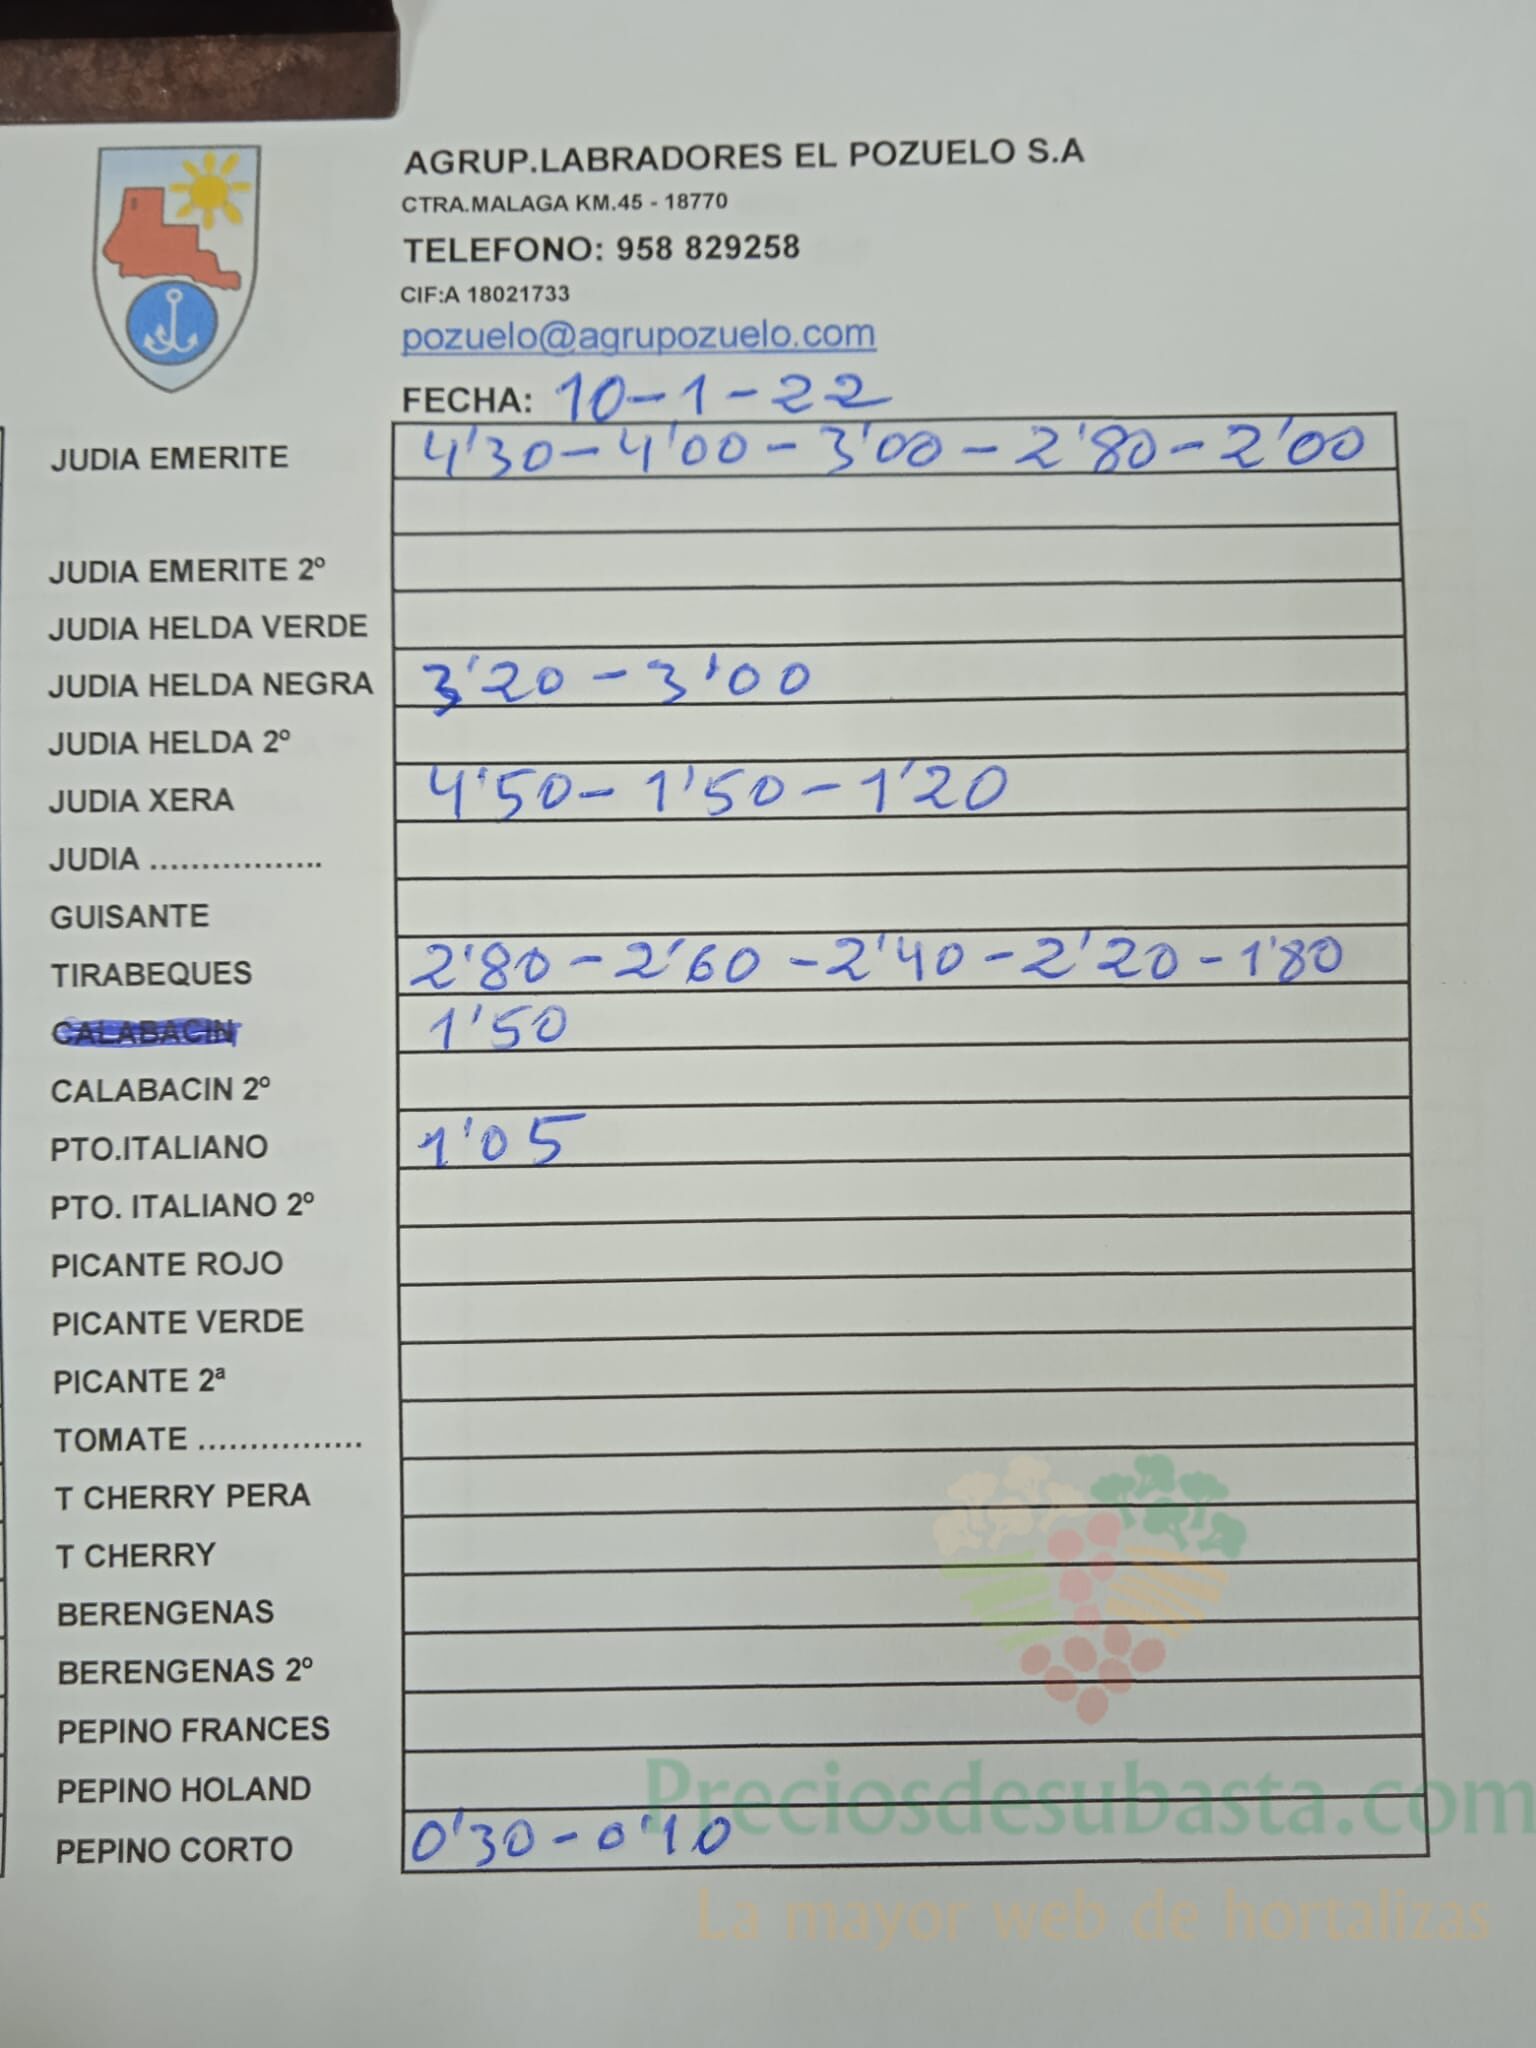 AGRUP.LABRADORES EL POZUELO S.A
CTRA.MALAGA KM.45 - 18770
TELEFONO: 958 829258
CIF:A 18021733
pozuelo@agrupozuelo.com
FECHA: 10-1-22
JUDIA EMERITE 4'30-4'00-3'00-2'80-2'00
JUDIA EMERITE 2º
JUDIA HELDA VERDE
JUDIA HELDA NEGRA 3'20-3'00
JUDIA HELDA 2º
JUDIA XERA 4'50-1'50-1'20
JUDIA .................
GUISANTE
TIRABEQUES 2'80-2'60-2'40-2'20-1'80
CALABACIN 1'50
CALABACIN 2º
PTO.ITALIANO 1'05
PTO. ITALIANO 2º
PICANTE ROJO
PICANTE VERDE
PICANTE 2ª
TOMATE ................
T CHERRY PERA
T CHERRY
BERENGENAS
BERENGENAS 2º
PEPINO FRANCES
PEPINO HOLAND
PEPINO CORTO 0'30-0'10
Preciosdesubasta.com
La mayor web de hortalizas